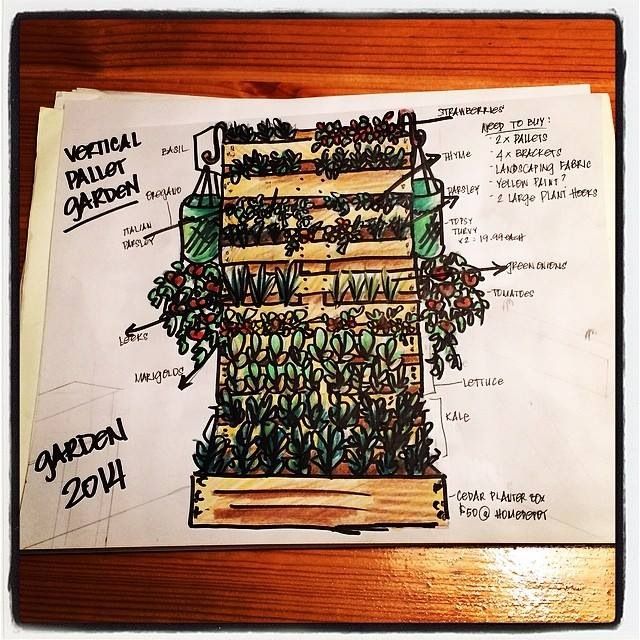 VERTICAL
PALLET
GARDEN
BASIL
OREGANO
ITALIAN
PARSLEY
LEEKS
MARIGOLDS
GARDEN
2014
STRAWBERRIES
NEED TO BUY:
- 2 x PALLETS
- 4 x BRACKETS
- LANDSCAPING FABRIC
- YELLOW PAINT?
- 2 LARGE PLANT HOOKS
THYME
PARSLEY
- TOPSY
TURVY
x2 = 19.99 EACH
GREEN ONIONS
- TOMATOES
LETTUCE
KALE
- CEDAR PLANTER BOX
$50 @ HOMEDEPOT